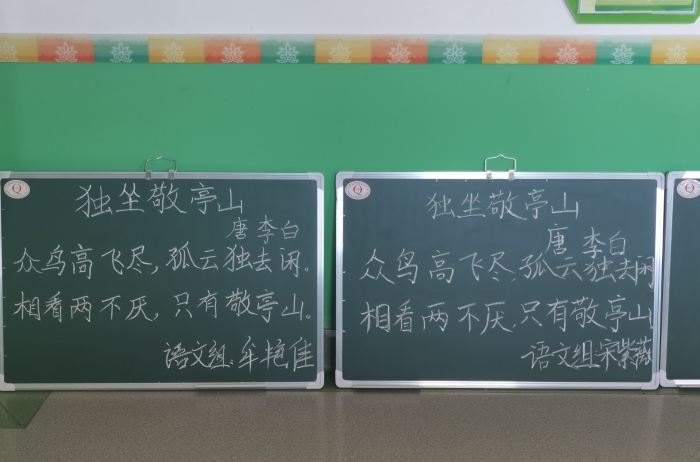 独坐敬亭山
唐 李白
众鸟高飞尽,孤云独去闲。
相看两不厌,只有敬亭山。
语文组:牟艳佳
独坐敬亭山
唐 李白
众鸟高飞尽,孤云独去闲
相看两不厌,只有敬亭山
语文组:宋紫薇